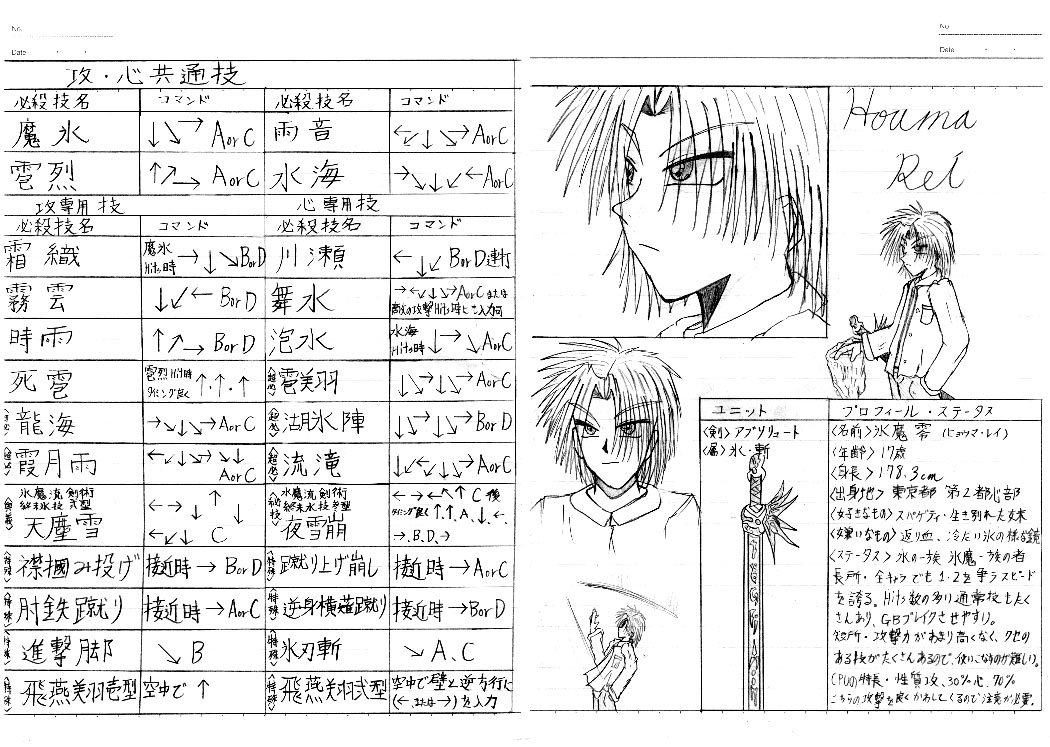 No.
Date
攻・心共通技
必殺技名 コマンド 必殺技名 コマンド
魔氷 ↓↘→ AorC 雨音 ←↙↓↘→AorC
雹烈 ↑↗→ AorC 水海 →↘↓↙←AorC
攻専用技 心専用技
必殺技名 コマンド 必殺技名 コマンド
霜織 魔氷Hits時→↓↘BorD 川瀬 ←↓↙BorD連打
霧雲 ↓↙← BorD 舞水 →←↙↓↘→AorCまたは
敵の攻撃Hits時にも入力可
時雨 ↑↗→ BorD 泡水 水海Hits時↓→↘AorC
死雹 雹烈Hit時
タイミング良く ↑・↑・↑ 雹美羽 ↓↘→↓↘→AorC
龍海 →↘↓↘→AorC 湖氷陣 ↓↘→↓↘→BorD
霞月雨 ←↙↓↘→↘↓
AorC 流滝 ↓↙←↙↓↘→AorC
氷魔流剣術
天塵雪 ←→↓↑↓
←↙↓ C
氷魔流剣術
夜雪崩 ←→←↖↑C後
タイミング良く↑.↑.A.↓.←.
→.B.D.→
<特殊> 襟掴み投げ 接近時→BorD <特殊> 蹴り上げ崩し 接近時→AorC
<特殊> 肘鉄蹴り 接近時→AorC <特殊> 逆身横薙蹴り 接近時→BorD
<特殊> 進撃脚 ↘ B <特殊> 氷刃斬 ↘A.C
<特殊> 飛燕美羽壱型 空中で ↑ <特殊> 飛燕美羽弐型 空中で壁と逆方向に
(←または→)を入力
No.
Date
Houma
Rei
ユニット
<剣>アブソリュート
<属>氷・斬
プロフィール・ステータス
<名前>氷魔 零 (ヒョウマ・レイ)
<年齢>17歳
<身長>178.3cm
<出身地>東京都 第2都心部
<好きなもの>スパゲティ・生き別れた妹
<嫌いなもの>返り血、冷たい氷の様な鏡
<ステータス>氷の一族 氷魔一族の者
長所・全キャラでも1・2を争うスピード
を誇る。Hits数の多り通常技もたく
さんあり、GBブレイクさせやすい。
短所・攻撃力があまり高くなく、クセの
ある技がたくさんあるので、使いこなすのが難しい。
CPUの特長・性質攻、30%心、70%
こちらの攻撃を良くかわしてくるので注意が必要。